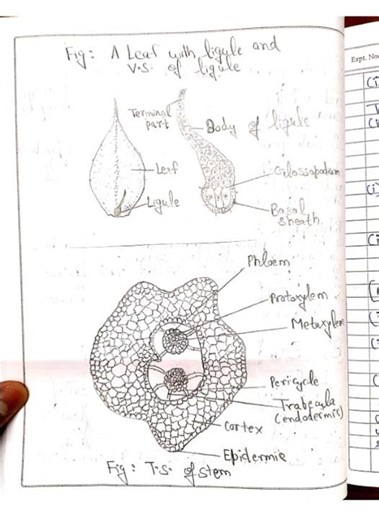 Fig: A Leaf with ligule and
V.S. of ligule
Terminal
part
Body of ligule
Leaf
Glossopodium
Ligule
Basal
sheath
Phloem
Protoxylem
Metaxylem
Pericycle
Trabecula
(endodermis)
Cortex
Epidermis
Fig: T.S. of stem
Expt. No.